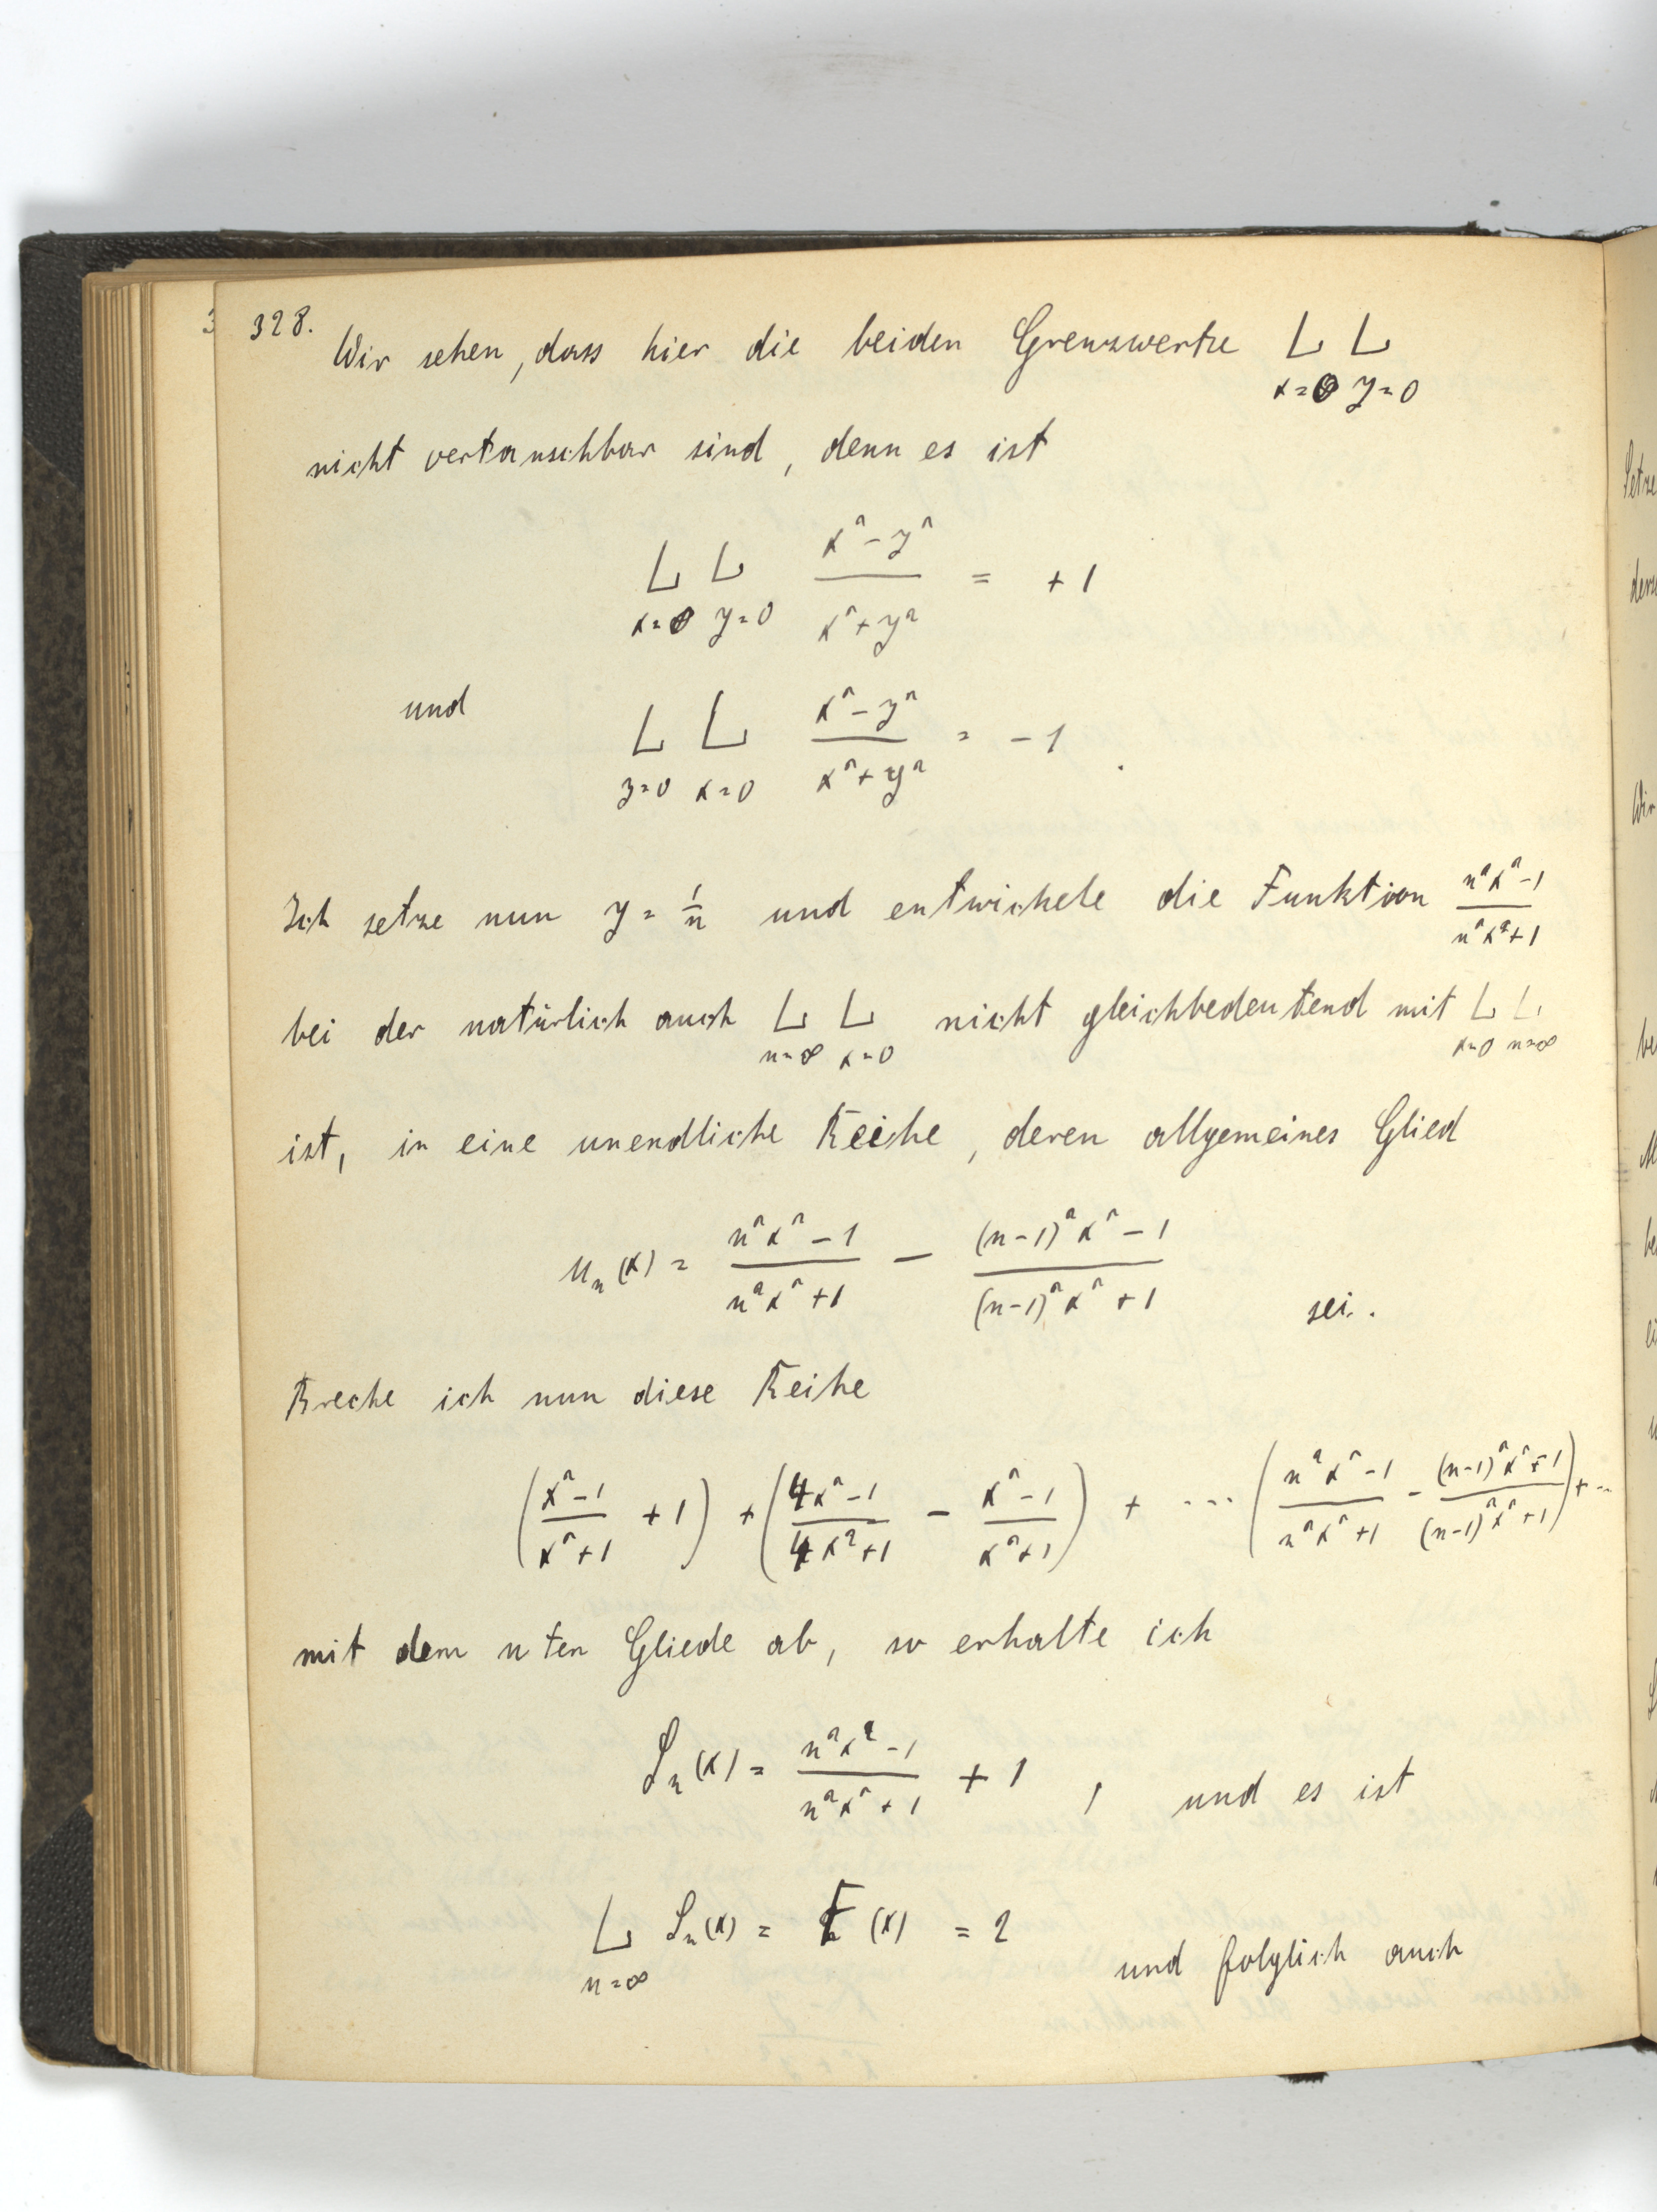 328.
Wir sehen, dass hier die beiden Grenzwerte L L
x=0 y=0
nicht vertauschbar sind, denn es ist
L L (x²-y²)/(x²+y²) = +1
x=0 y=0
und L L (x²-y²)/(x²+y²) = -1.
y=0 x=0
Ich setze nun y = 1/n und entwickele die Funktion (n²x²-1)/(n²x²+1)
bei der natürlich auch L L nicht gleichbedeutend mit L L
n=∞ x=0 x=0 n=∞
ist, in eine unendliche Reihe, deren allgemeines Glied
uₙ(x) = (n²x²-1)/(n²x²+1) - ((n-1)²x²-1)/((n-1)²x²+1) sei.
Breche ich nun diese Reihe
((x²-1)/(x²+1) + 1) + ((4x²-1)/(4x²+1) - (x²-1)/(x²+1)) + --- ((n²x²-1)/(n²x²+1) - ((n-1)²x²+1)/((n-1)²x²+1)) + --
mit dem n ten Gliede ab, so erhalte ich
Sₙ(x) = (n²x²-1)/(n²x²+1) + 1, und es ist
L Sₙ(x) = F(x) = 2 und folglich auch
n=∞